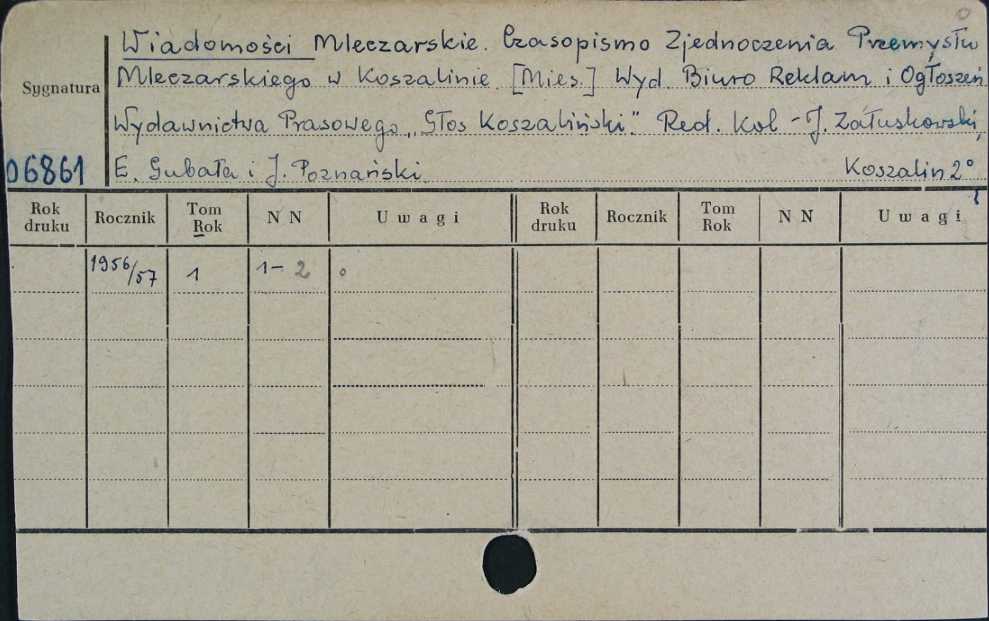 Wiadomości Mleczarskie. Czasopismo Zjednoczenia Przemysłu
Sygnatura
Mleczarskiego w Koszalinie. [Mies.] Wyd. Biuro Reklam i Ogłoszeń
Wydawnictwa Prasowego „Głos Koszaliński". Red. Kol - J. Załuskowski,
06861
E. Gubała i J. Poznański. Koszalin 2°
Rok druku Rocznik Tom Rok N N Uwagi Rok druku Rocznik Tom Rok N N Uwagi
1956/57 1 1-2